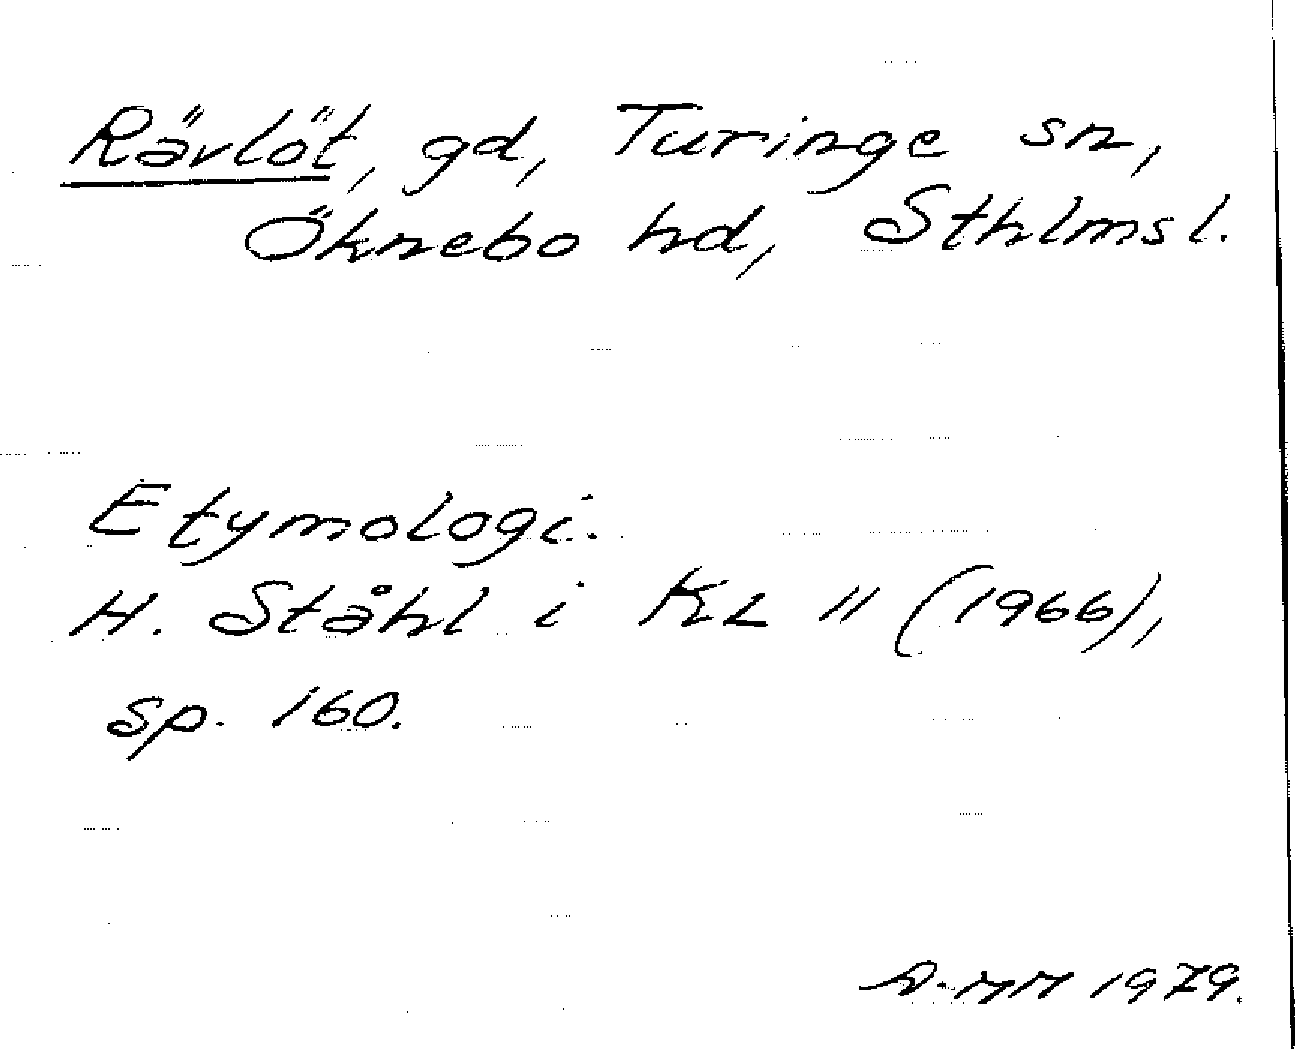 Rävlöt, gd, Turinge sn,
Öknebo hd, Sthlmsl.
Etymologi.
H. Ståhl i KL 11 (1966),
sp. 160.
1979.